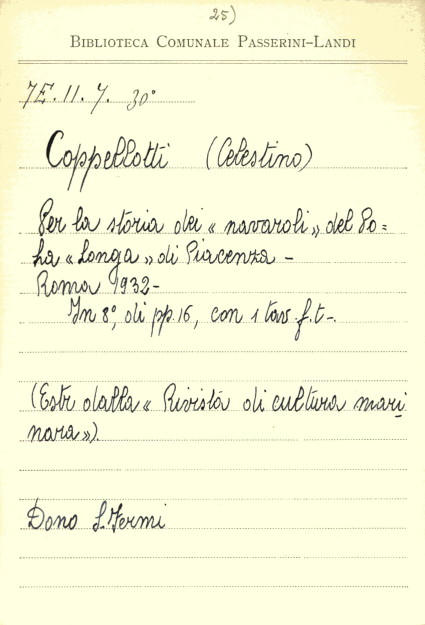 25)
BIBLIOTECA COMUNALE PASSERINI-LANDI
7E.11.7. 30°
Coppellotti (Celestino)
Per la storia dei « navaroli » del Po=
ha « Longa » di Piacenza -
Roma 1932-
In 8°, di pp. 16, con 1 tav. f.t-.
(Estr dalla « Rivista di cultura mari
nara »).
Dono S. Fermi